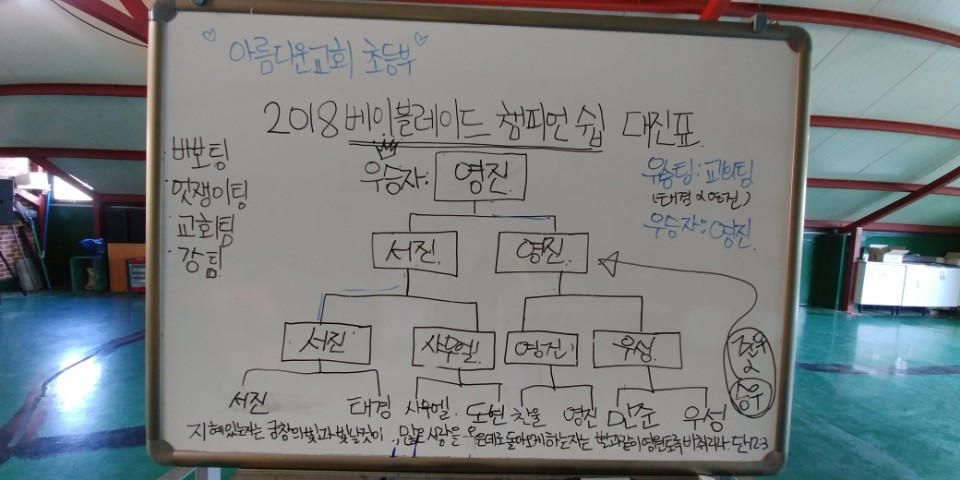 아름다운교회 초등부
2018 베이블레이드 챔피언 쉽 대진표
바보팀
멋쟁이팀
교회팀
강팀
우승자: 영진
우승팀: 교회팀
(태경 & 영진)
우승자: 영진
서진 영진
서진 사무엘 영진 우성
서진 태경 사무엘 도현 찬울 영진 민준 우성
승우
지혜있는자는 궁창의 빛과 같이 빛날것이요, 많은 사람을 옳은데로 돌아오게 하는자는 별과같이 영원토록 비취리라. 단12:3